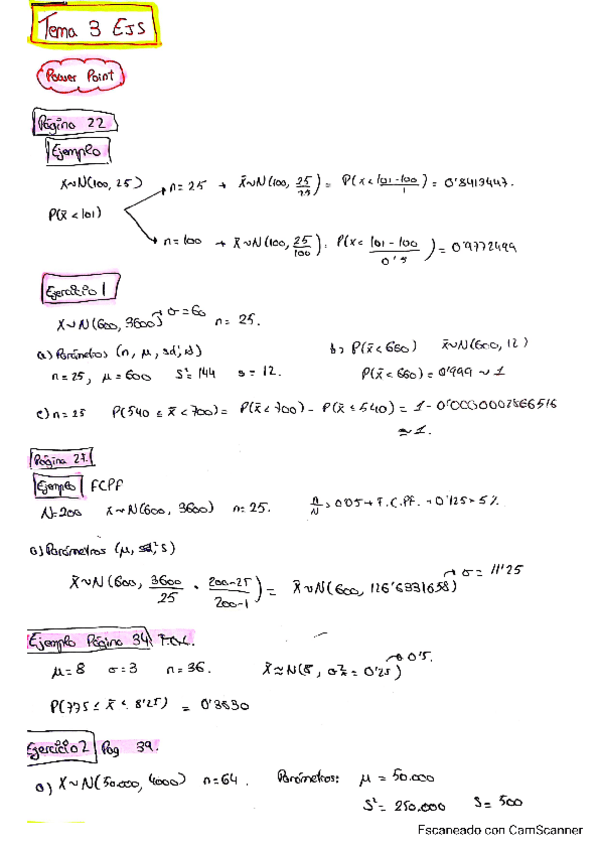 Tema 3 EJS
Power Point
Página 22
Ejemplo
X~N(100, 25) n=25 → x̄~N(100, 25/25) = P(x < 101-100/1) = 0'8413447.
P(x̄ < 101)
n=100 → x̄~N(100, 25/100) = P(x < 101-100/0'5) = 0'9772499
Ejercicio 1
X~N(600, 3600) → σ=60 n= 25.
a) Parámetros (n, μ, sd²,s) b) P(x̄<660) x̄~N(600, 12)
n=25, μ=600 S²=144 s=12. P(x̄<660)=0'999 ~ 1
c) n=25 P(540 ≤ x̄ < 700)= P(x̄<700) - P(x̄ ≤ 540) = 1 - 0'0000002866516
≈ 1.
Página 27.
Ejemplo FCPF
N=200 x~N(600, 3600) n=25. n/N > 0'05 → F.C.P.F. → 0'125 > 5%
a) Parámetros (μ, sd², s)
x̄~N(600, 3600/25 · 200-25/200-1) = x̄~N(600, 126'6331658) → σ= 11'25
Ejemplo Página 34 T.C.L.
μ=8 σ=3 n=36. x̄≈N(8, σ²x̄ = 0'25) → 0'5.
P(7'75 ≤ x̄ < 8'25) = 0'3830
Ejercicio 2 Pag 39.
a) X~N(50.000, 4000) n=64. Parámetros: μ = 50.000
S²= 250.000 S= 500
Escaneado con CamScanner